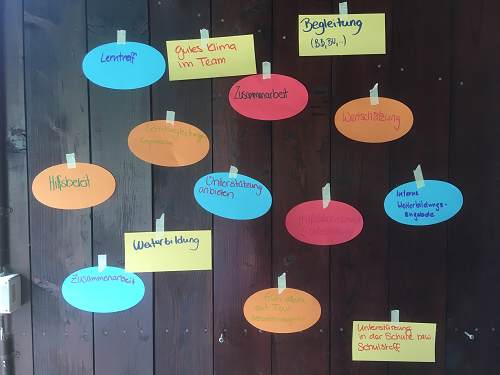 Begleitung
(BB, BU, ..)
gutes Klima
im Team
Lerntreff
Zusammenarbeit
Wertschätzung
Hilfsbereit
Unterstützung
anbieten
Interne
Weiterbildungs-
angebote
Weiterbildung
Zusammenarbeit
auf Tour
Unterstützung
in der Schule bzw.
Schulstoff